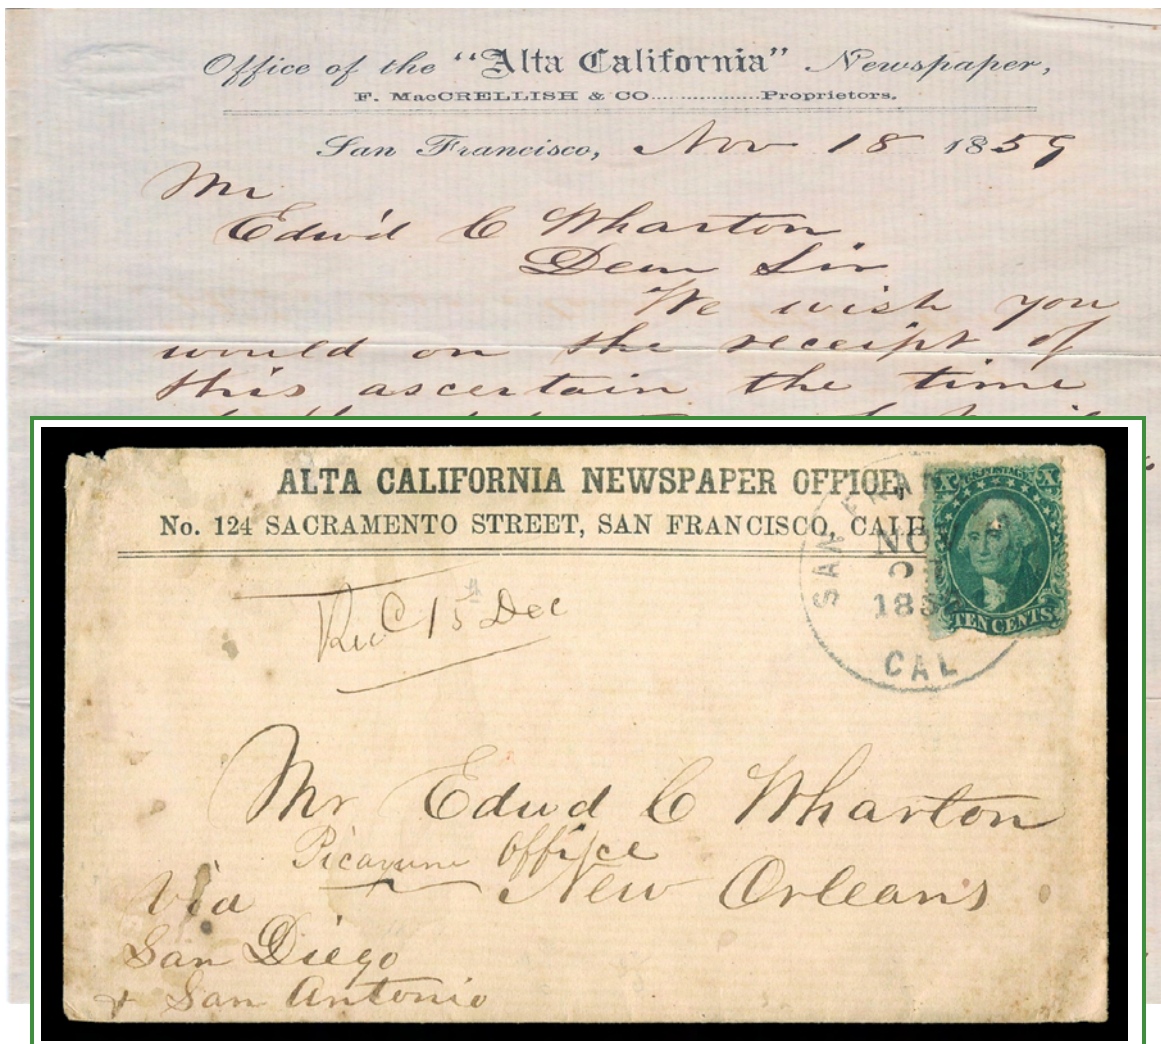 Office of the "Alta California" Newspaper,
F. MacCRELLISH & CO..................Proprietors.
San Francisco, Nov 18 1859
Mr
Edw'd C Wharton
Dear Sir
We wish you
would on the receipt of
this ascertain the time
ALTA CALIFORNIA NEWSPAPER OFFICE,
No. 124 SACRAMENTO STREET, SAN FRANCISCO, CAL
SAN FRA
NO
185
CAL
X U.S. POSTAGE X
TEN CENTS
Rec 15th Dec
Mr Edwd C Wharton
Picayune Office
New Orleans
Via
San Diego
& San Antonio